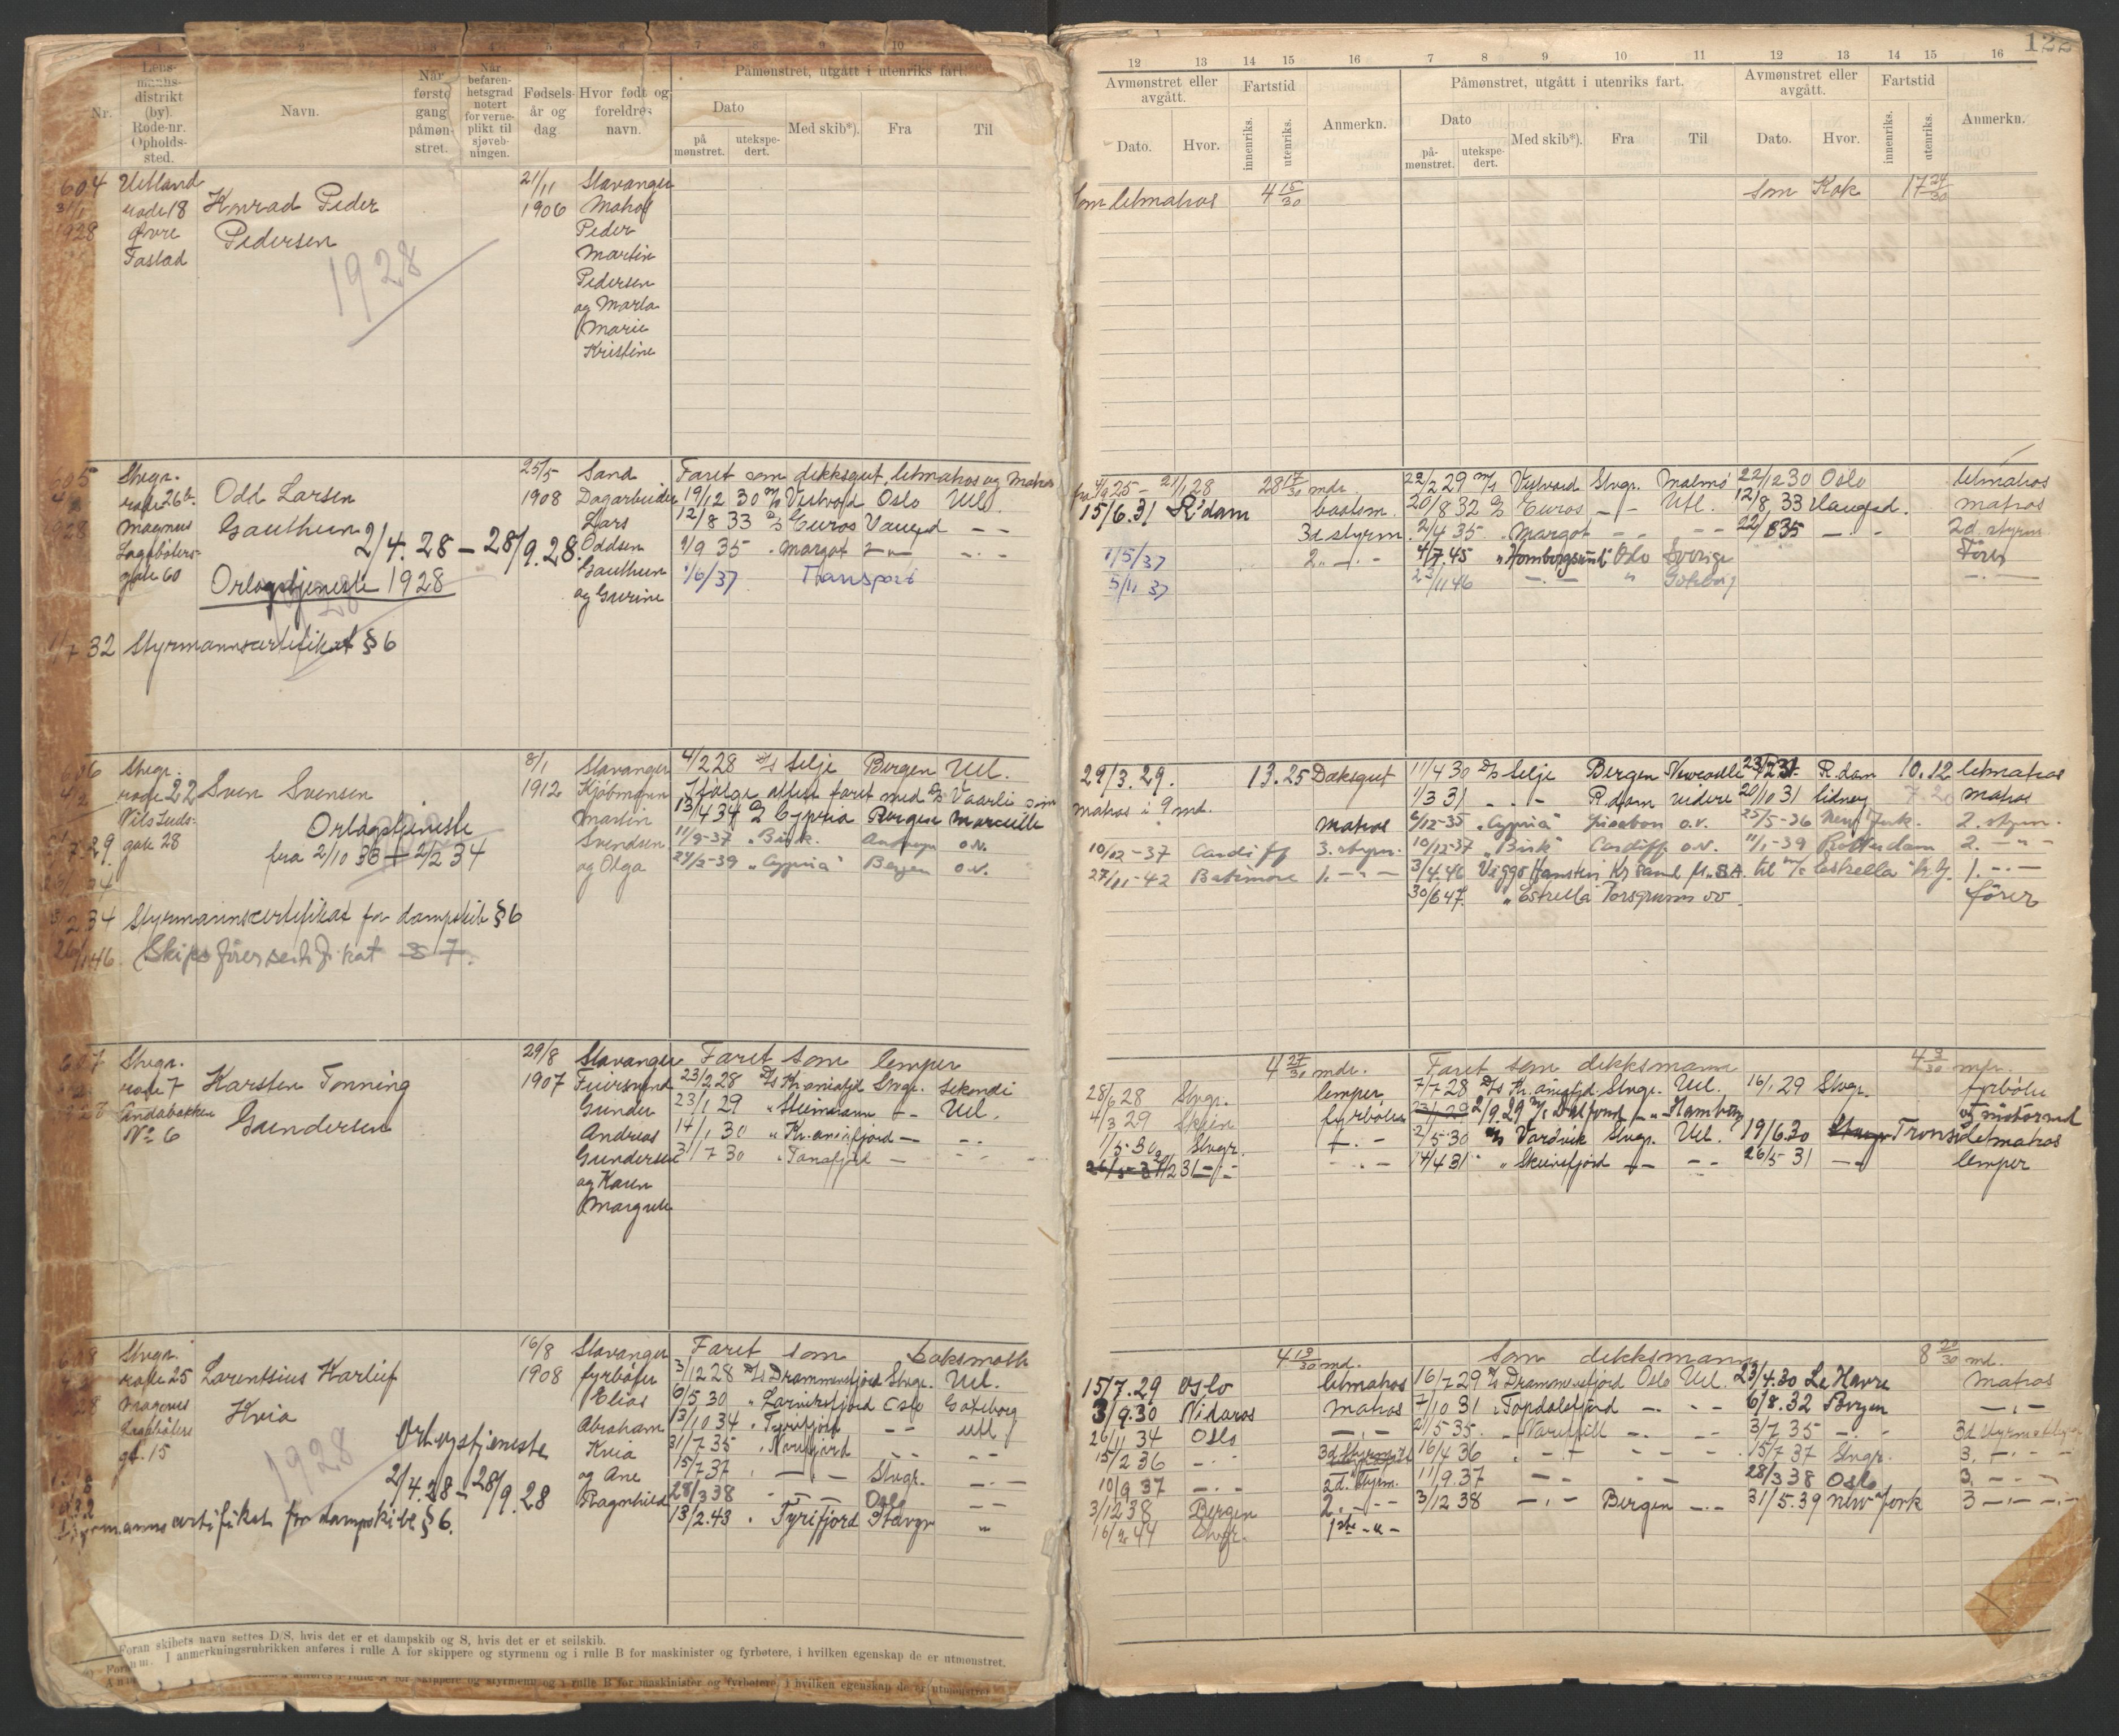 122
1 2 3 4 5 6 7 8 9 10
Nr.
Lens-
manns-
distrikt
(by).
Rode-nr.
Opholds-
sted.
Navn.
Når
første
gang
påmøn-
stret.
Når
befaren-
hetsgrad
notert
for verne-
plikt til
sjøveb-
ningen.
Fødsels-
år og
dag.
Hvor født og
foreldres
navn.
Påmønstret, utgått i utenriks fart.
Dato
på
mønstret.
utekspe-
dert.
Med skib*).
Fra
Til
12 13 14 15 16 7 8 9 10 11 12 13 14 15 16
Avmønstret eller
avgått.
Dato.
Hvor.
Fartstid
innenriks.
utenriks.
Anmerkn.
Påmønstret, utgått i utenriks fart.
Dato
på-
mønstret.
utekspe-
dert.
Med skib*).
Fra
Til
Avmønstret eller
avgått.
Dato.
Hvor.
Fartstid
innenriks.
utenriks.
Anmerkn.
604
31/1
1928
rode 18
Øvre
Tastad
Konrad Peder
Pedersen
1928
21/11
1906
Stavanger
Peder
Martin
Pedersen
og Marta
Marie
Kristine
Som letmatros 4 15/30
Som Kok 17 24/30
605
28
Stvgr.
rode 26b
Magnus
Lagabøters-
gate 60
Odd Larsen
Gauthun
2/4.28 – 28/9.28.
Orlogstjeneste 1928
1/7 32 Styrmannscertifikat § 6
25/5
1908
Sand
Dagarbeider
Lars
Oddsen
Gauthun
og Gurine
Faret som dekksgut, letmatros og Matros
19/12 30 M/s Vestvard Oslo Utl.
12/8 33 D/s Euros Haugsd — —
1/9 35 " Margot — " — — . —
1/6/37 Transport
fra 4/9 25 – 21/1 28 28 17/30 mdr.
15/6.31 R'dam baatsm.
3d styrm.
1/5/37 2. — . —
5/11 37
22/2 29 M/s Vestvard Stvgr. Malmø 22/12 30 Oslo letmatros
20/8 32 D/s Euros — Utl. 12/8 33 Haugsd. matros
2/4 35 " Margot — — 22/8 35 — . — 2d. styrm
4/7.45 " Homborgsund" Oslo Sverige Förer
23/11 46 — . — " Göteborg — . —
606
4/2
Stvgr.
rode 22
Nils Juels-
gate 28
Sven Svensen
Orlogstjeneste
fra 2/10 33 – 2/2 34
2 34 Styrmannscertifikat for dampskib § 6
26/1 46. Skipsförersertifikat § 7.
8/1
1912
Stavanger
Kjøbmann
Martin
Svendsen
og Olga
4/2 28 D/s Selje Bergen Utl.
Ifølge attest faret med D/s Vaarli som
13/4 34 D/s Cypria Bergen Marseille
11/9-37 "Bisk." Antwerpn o.v.
27/2-39 "Cypria" Bergen o.v.
29/3.29. 13.25 Deksgut
matros i 9 md.
Matros
10/12-37 Cardiff 3. styrm.
27/11-42 Batimore 1. — " —
11/4 30 D/s Selje Bergen Newcastle 23/2 31. R.dam 10.12 letmatros
1/3 31 — . — R.dam videre 20/10 31 Sidney 7.20 Matros
6/12-35 "Cypria" Lissabon o.v. 25/5-36 New York. 2. styrm.
10/12-37 "Bisk" Cardiff o.v. 11/1-39 Rotterdam 2. — " —
3/4.46 Viggo Hansteen Kr.sand til M/s "Estrella" 1. — . —
30/6 47. "Estrella" Porsgrunn o.v. förer
607
Stvgr.
rode 7
No 6
Karsten Tonning
Gundersen
29/8
1907
Stavanger
Gunder
Andreas
Gundersen
og Karen
Margrete
Faret som lemper
23/2 28 D/s Kr.aniafjd Stvgr. Sekondi
23/1 29 " Steinmann — Utl.
14/1 30 " Kr.aniafjord — — . —
31/7 30 " Tanafjord — — — —
4 27/30 mdr.
28/6 28 Stvgr. lemper,
4/3 29 Skien fyrbøter
1/5-30 Stvgr. — . —
2 31 — . — — . —
Faret som dekksmann 4 3/30 mdr.
7/7 28 D/s Kr.aniafjd Stvgr. Utl. 16/1 29 Stvgr. fyrbøter
2/9.29 — „ — Hamburg
2/5-30 M/s Vardvik Stvgr. Utl. 19/6.30 Tromsø letmatros
14/4 31 " Skiensfjord — — — 26/5-31 — lemper
608
28
Stvgr.
rode 25
Magnus
Lagabøters
gt. 15
Larentsius Karluf
Kvia
1928
Orlogstjeneste
2/4.28 – 28/9.28
Styrmannscertifikat for dampskibe § 6.
16/8
1908
Stavanger
fyrbøter
Elias
Abraham
Kvia
og Ane
Ragnhild
Faret som
3/12 28 D/s Drammensfjord Stvgr. Utl.
6/5 30 " Larviksfjord Oslo Gøteborg
13/10 34 " Tyrifjord — — utl
31/7 35 " Norefjord — — — —
15/7 37 " — . — Stvgr. — . —
28/3 38 — . — Oslo — —
13/2.43 " Tyrifjord Stavgr "
4 19/30 md.
15/7.29 Oslo letmatros
3/9.30 Nidaros Matros
26/11 34 Oslo — . —
15/2 36 — . — 3d Styrm.
10/9 37 — . — 2d. Styrm.
3/12 38 Bergen 2. — . —
16/2 44 Stvgr. 1ste — " —
Som dekksmann 8 20/30 md.
16/7 29 D/s Drammensfjord Oslo Utl. 23/4.30 Le Havre Matros
7/10 31 " Topdalsfjord — . — — 6/8.32 Bergen — . —
2/5 35. " Varifjell — . — — 3/7 35 — . —
16/4 36 " — . — — . — — 15/7 37 Stvgr. 3. — . —
11/9.37 — . — — . — 28/3 38 Oslo 3. — . —
3/12 38 — . — Bergen — . — 31/5.39 New York 3 — . —
Foran skibets navn settes D/S, hvis det er et dampskib og S, hvis det er et seilskib.
I anmerkningsrubrikken anføres i rulle A for skippere og styrmenn og i rulle B for maskinister og fyrbøtere, i hvilken egenskap de er utmønstret.
rulle A for skippere og styrmenn og i rulle B for maskinister og fyrbøtere, i hvilken egenskap de er utmønstret